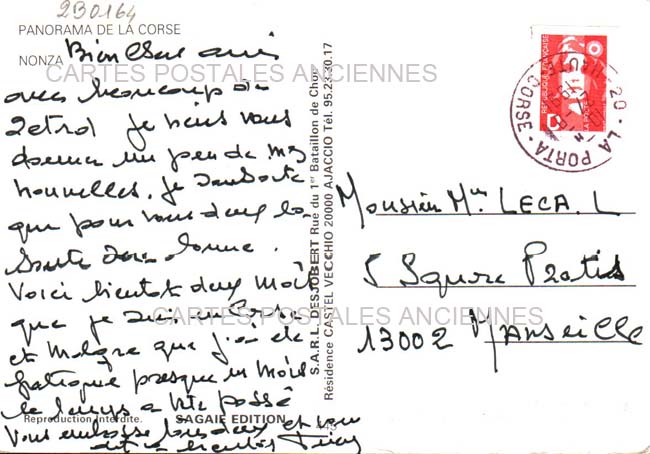 2B0164
PANORAMA DE LA CORSE
NONZA
Bien Cher ami
CARTES POSTALES ANCIENNES
avec beaucoup de
retard je viens vous
donner un peu de mes
nouvelles. Je souhaite
que pour vous deux la
Santé Soit bonne.
Voici bientot deux mois
que je suis en Corse
et malgre que j'ai de
fatigue presque un mois
le temps a vite passé
Vous embrasse tous deux et vous
dit a bientot
Reproduction interdite. SAGAIE EDITION 443
S.A.R.L. DESJOBERT Rue du 1er Bataillon de Choc
Résidence CASTEL VECCHIO 20000 AJACCIO Tél. 95.23.30.17
REPUBLIQUE FRANÇAISE
D
20 - LA PORTA - HAUTE CORSE
Monsieur Mme LECA. L
5 Square Protis
13002 Marseille
CARTES POSTALES ANCIENNES